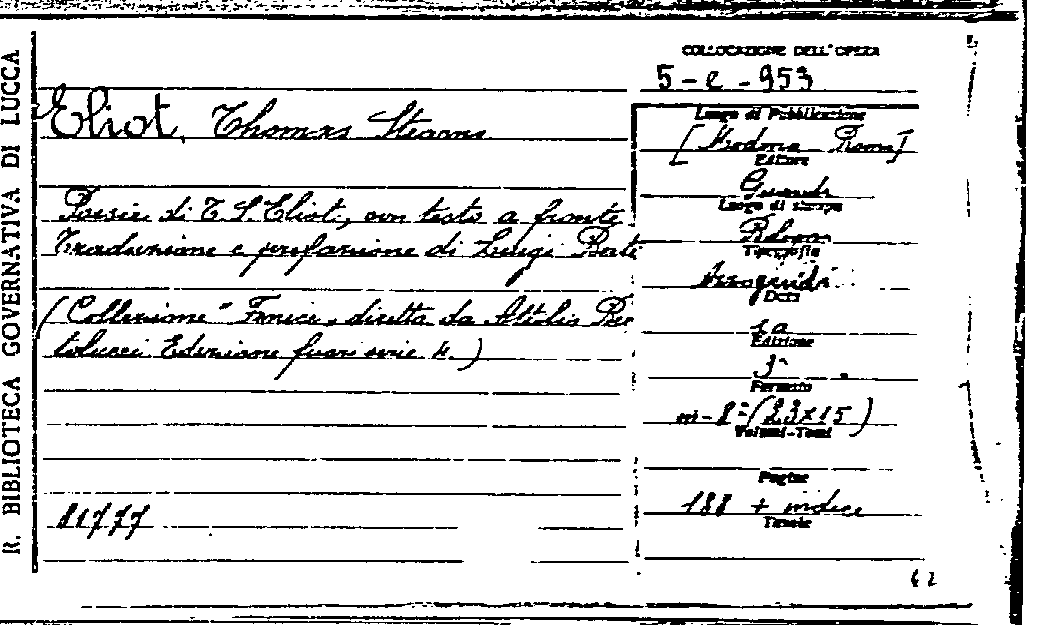 R. BIBLIOTECA GOVERNATIVA DI LUCCA
COLLOCAZIONE DELL'OPERA
5-e-953
Eliot, Thomas Stearns
Luogo di Pubblicazione
[Modena Roma]
Editore
Guanda
Luogo di stampa
Poesie di T S Eliot, con testo a fronte
Traduzione e prefazione di Luigi Berti
Tipografia
Data
(Collezione "Fenice, diretta da Attilio Ber
tolucci Edizione fuori serie 4.)
s a
Edizione
3ª
Formato
in-8º (23x15)
Volumi-Tomi
Pagine
188 + indice
Tavole
81777
62